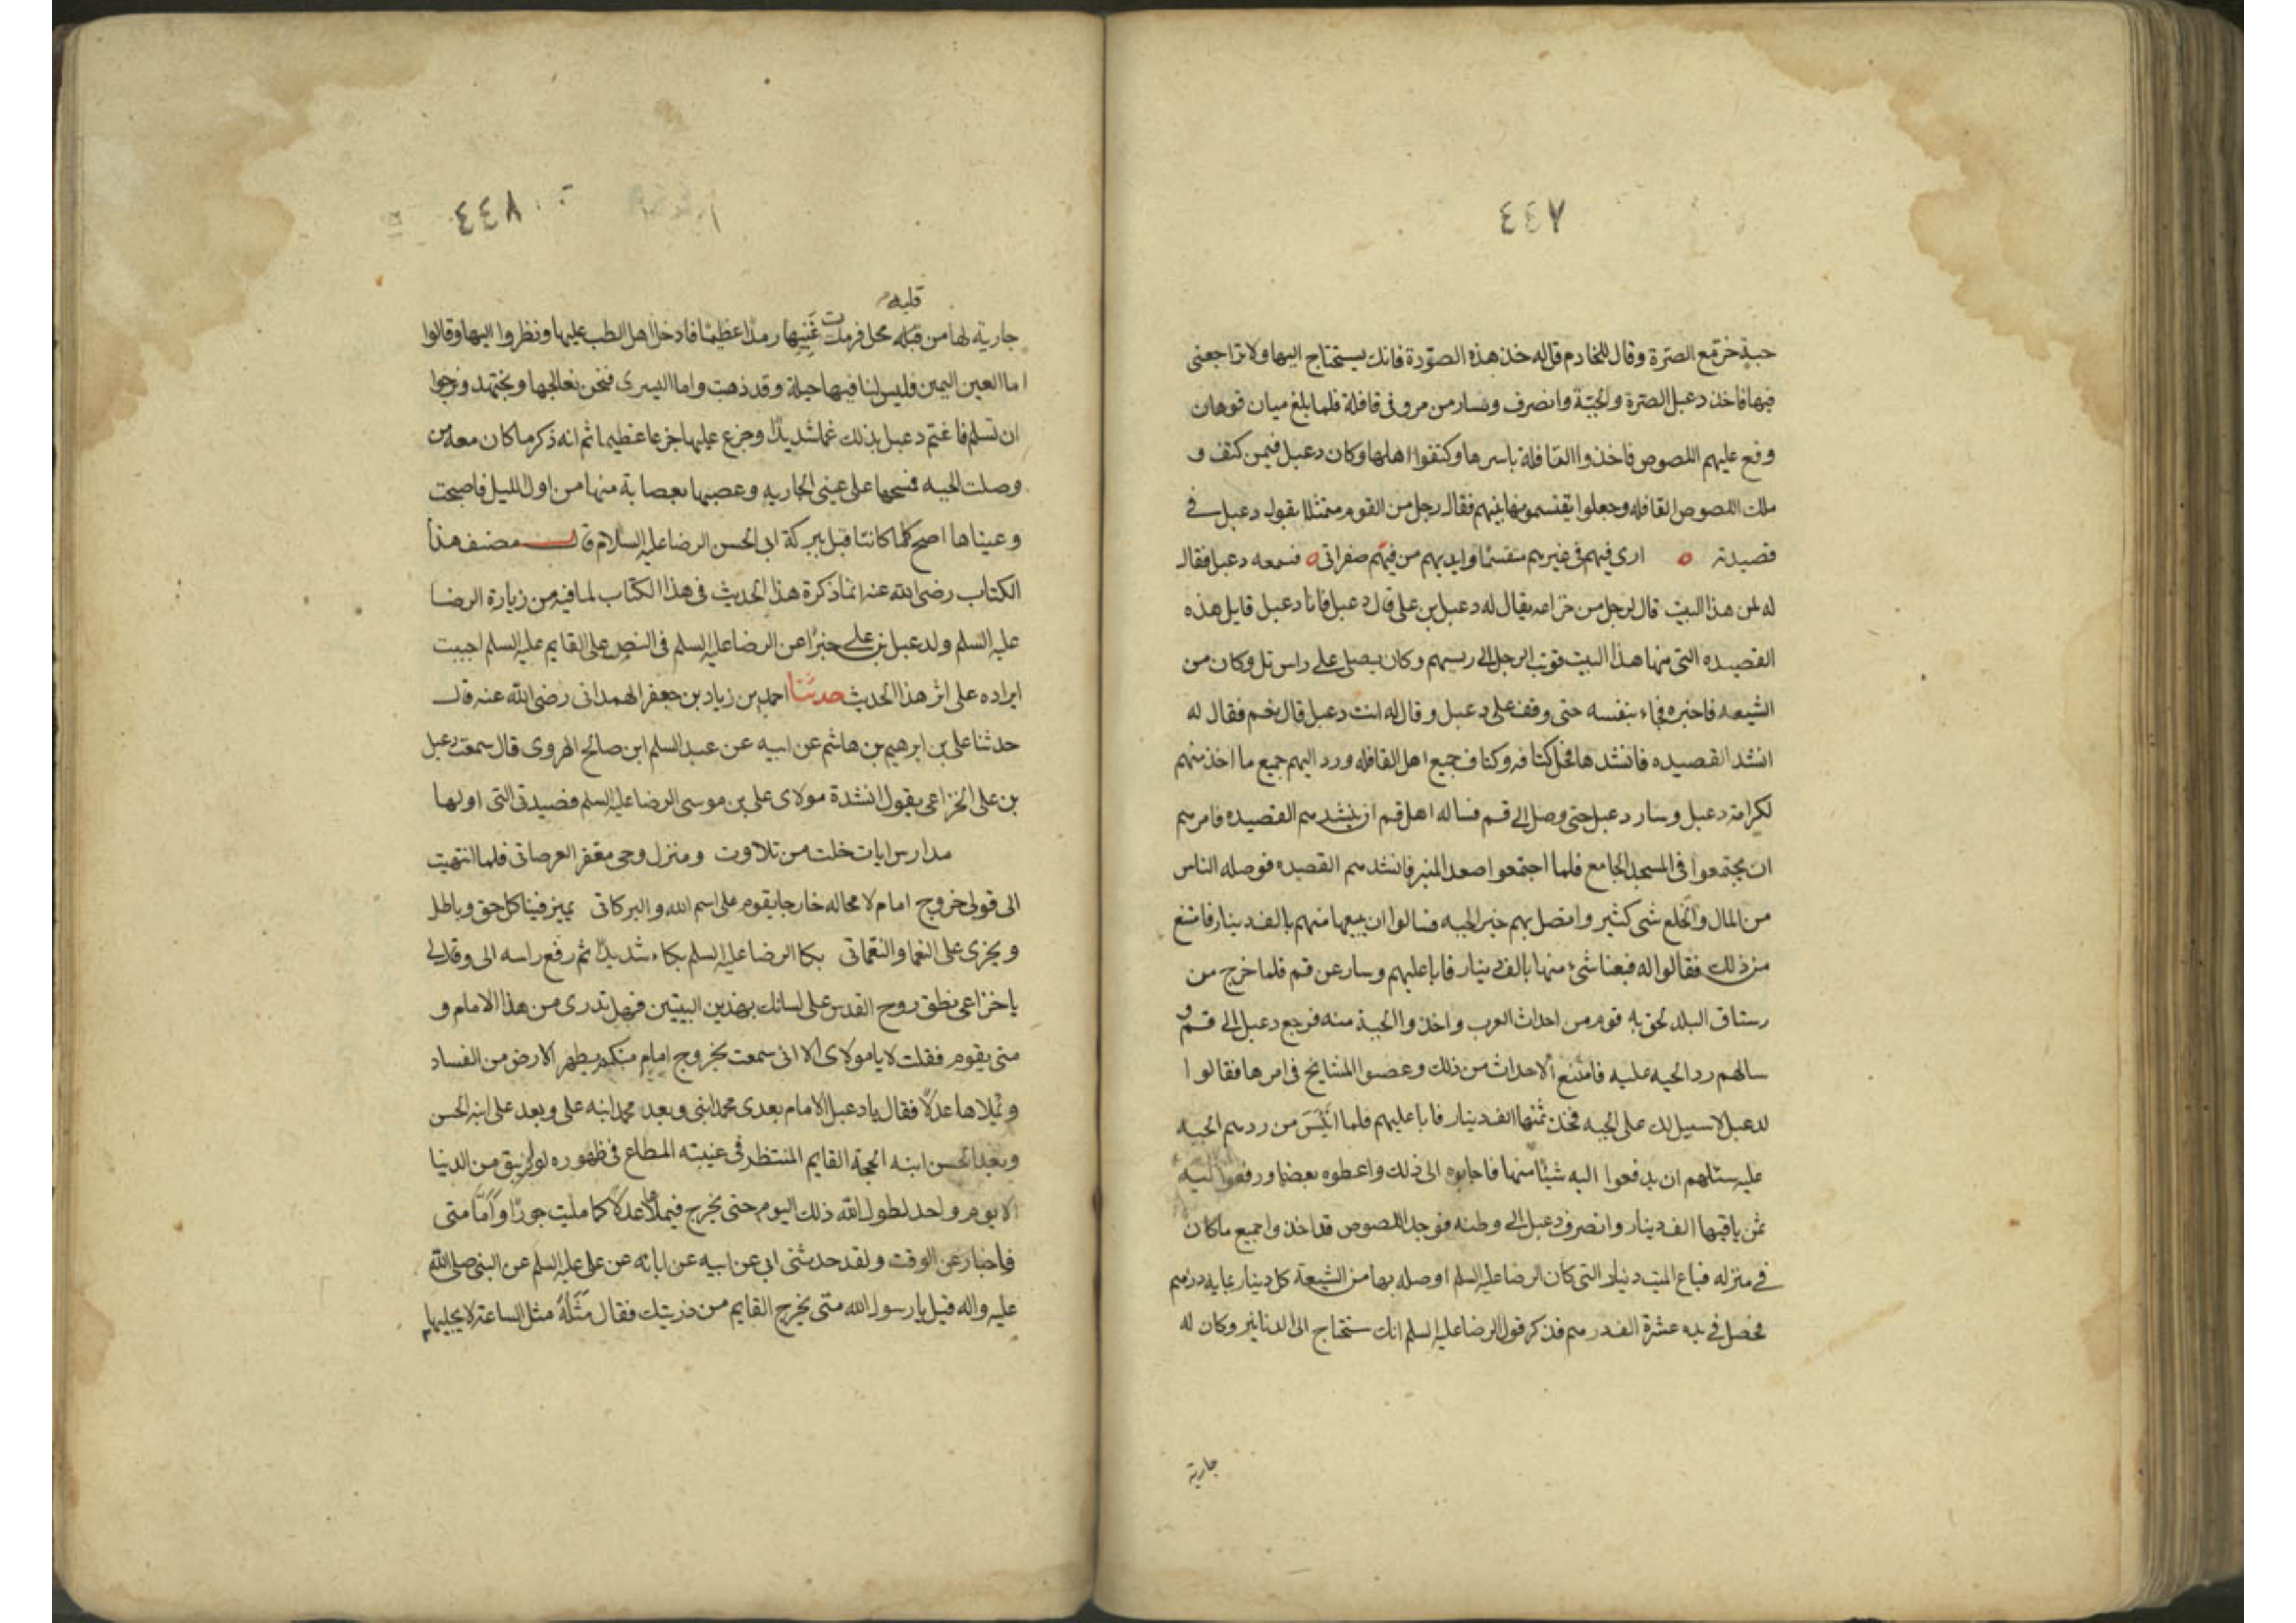 ٤٤٧
جبة خز مع الصرة وقال للخادم قل له خذ هذه الصورة فانك ستحتاج اليها ولا تراجعنى
فيها فاخذ دعبل الصرة والجبة وانصرف وسار من مرو فى قافلة فلما بلغ ميان قوهان
وقع عليهم اللصوص فاخذوا القافلة باسرها وكتفوا اهلها وكان دعبل فيمن كتف و
ملك اللصوص القافله وجعلوا يقتسمونها بينهم فقال رجل من القوم متمثلا بقول دعبل فى
قصيدته ارى فيهم فى غيرهم متقسما وايديهم من فيهم صفراتى فسمعه دعبل فقال
له لمن هذا البيت قال لرجل من خزاعه يقال له دعبل بن على قال دعبل فانا دعبل قايل هذه
القصيده التى منها هذا البيت فوثب الرجل الى ريسهم وكان يصلى على راس تل وكان من
الشيعه فاخبره فجاء بنفسه حتى وقف على دعبل وقال له انت دعبل قال نعم فقال له
انشد القصيده فانشدها فحل كتافه وكتاف جميع اهل القافله ورد اليهم جميع ما اخذ منهم
لكرامة دعبل وسار دعبل حتى وصل الى قم فساله اهل قم ان ينشدهم القصيده فامرهم
ان يجتمعوا فى المسجد الجامع فلما اجتمعوا صعد المنبر فانشدهم القصيده فوصله الناس
من المال والخلع شى كثير واتصل بهم خبر الجبه فسالوا ان يبيعها منهم بالف دينار فامتنع
من ذلك فقالوا له فبعنا شئ منها بالف دينار فابا عليهم وسار عن قم فلما خرج من
رستاق البلد لحق به قوم من احداث العرب واخذوا الجبة منه فرجع دعبل الى قم و
سالهم رد الجبه عليه فامتنع الاحداث من ذلك وعصوا المشايخ فى امرها فقالوا
لدعبل لا سبيل لك على الجبه فخذ ثمنها الف دينار فابا عليهم فلما ائيس من ردهم الجبه
عليه سئلهم ان يدفعوا اليه شيئا منها فاجابوه الى ذلك واعطوه بعضها ورفعوا اليه
ثمن باقيها الف دينار وانصرف دعبل الى وطنه فوجد اللصوص قد اخذوا جميع ما كان
فى منزله فباع المئت دينار التى كان الرضا عليه السلم اوصله بها من الشيعة كل دينار بمايه درهم
فحصل فى يده عشرة الف درهم فذكر قول الرضا عليه السلم انك ستحتاج الى الدنانير وكان له
جارية
٤٤٨
قلبه
جارية لها من قبله محل فرمدت عينيها رمدا عظيما فادخل اهل الطب عليها ونظروا اليها وقالوا
اما العين اليمين فليس لنا فيها حيلة وقد ذهبت واما اليسرى فنحن نعالجها ونجتهد ونرجوا
ان تسلم فاغتم دعبل بذلك غما شديدا وجزع عليها جزعا عظيما ثم انه ذكر ما كان معه من
وصلت الجبه فمسحها على عينى الجاريه وعصبها بعصابة منها من اول الليل فاصبحت
وعيناها اصح كما كانتا قبل ببركة ابى الحسن الرضا عليه السلام قال مصنف هذا
الكتاب رضى الله عنه انما ذكرة هذا الحديث فى هذا الكتاب لما فيه من زيارة الرضا
عليه السلم ولدعبل بن على خبرا عن الرضا عليه السلم فى النص على القايم عليه السلم اجبت
ايراده على اثر هذا الحديث حدثنا احمد بن زياد بن جعفر الهمدانى رضى الله عنه قال
حدثنا على بن ابرهيم بن هاشم عن ابيه عن عبد السلم ابن صالح الهروى قال سمعت دعبل
بن على الخزاعى يقول انشدة مولاى على بن موسى الرضا عليه السلم قصيدتى التى اولها
مدارس ايات خلت من تلاوت ومنزل وحى مقفر العرصاتى فلما انتهيت
الى قولى خروج امام لا محاله خارجا يقوم على اسم الله والبركاتى يميز فينا كل حق وباطل
ويجزى على النعما والنقماتى بكا الرضا عليه السلم بكاء شديدا ثم رفع راسه الى وقال لى
يا خزاعى نطق روح القدس على لسانك بهذين البيتين فهل تدرى من هذا الامام و
متى يقوم فقلت لا يا مولاى الا انى سمعت بخروج امام منكم يطهر الارض من الفساد
ويملاها عدلا فقال يا دعبل الامام بعدى محمد ابنى وبعد محمد ابنه على وبعد على ابنه الحسن
وبعد الحسن ابنه الحجة القايم المنتظر فى غيبته المطاع فى ظهوره لو لم يبق من الدنيا
الا يوم واحد لطول الله ذلك اليوم حتى يخرج فيملأها عدلا كما مليت جورا واما متى
فاخبار عن الوقت ولقد حدثنى ابى عن ابيه عن ابائه عن على عليه السلم عن النبى صلى الله
عليه واله قيل يا رسول الله متى يخرج القايم من ذريتك فقال مثله مثل الساعة لا يجليها